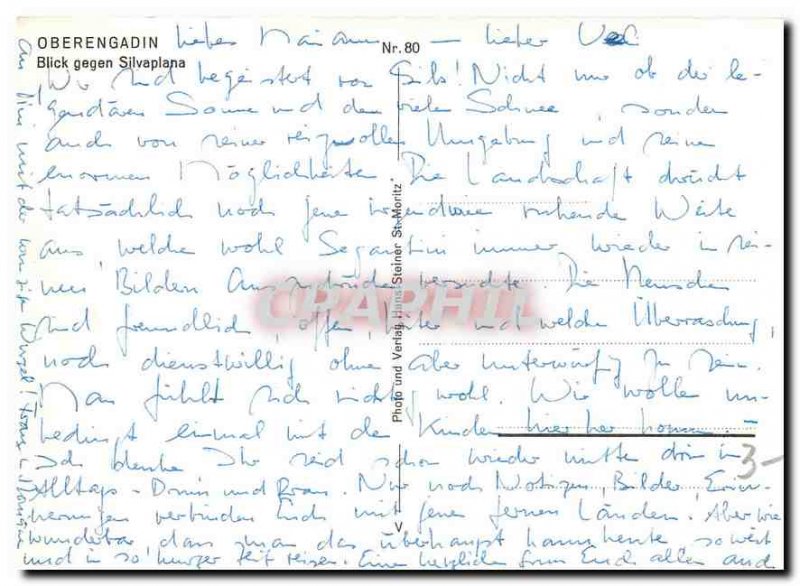 OBERENGADIN
Blick gegen Silvaplana
Nr. 80
liebes Mariann – lieber
Wir sind begeistert von Sils! Nicht nur ob der le-
gendären Sonne und dem vielen Schnee, sondern
auch von seiner reizvollen Umgebung und seinen
enormen Möglichkeiten. Die Landschaft drückt
tatsächlich noch jene irgendwie ruhende Weite
aus, welche wohl Segantini immer wieder in sei-
nen Bildern auszudrücken versuchte. Die Menschen
sind freundlich, offen, und welche Überraschung,
noch dienstwillig ohne aber unterwürfig zu sein.
Man fühlt sich richtig wohl. Wir wollen un-
bedingt einmal mit den Kindern hierher kommen. –
Ich denke Ihr seid schon wieder mitten drin im
Alltags- Drum und Dran. Nur noch Notizen, Bilder, Erin-
nerungen verbinden Euch mit jenen fernen Ländern. Aber wie
wunderbar, dass man das überhaupt kann heute so weit
und in so kurzer Zeit reisen. Eine herzlichen Gruss Euch allen auch
an Dini mit der Wurzel! Franz + Monique
Photo und Verlag Hans Steiner St. Moritz
V
CPARHIL
3-